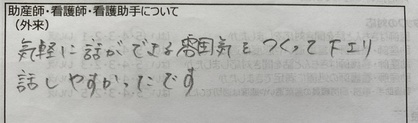 助産師・看護師・看護助手について
(外来)
気軽に話ができる雰囲気をつくって下エリ
話しやすかったです